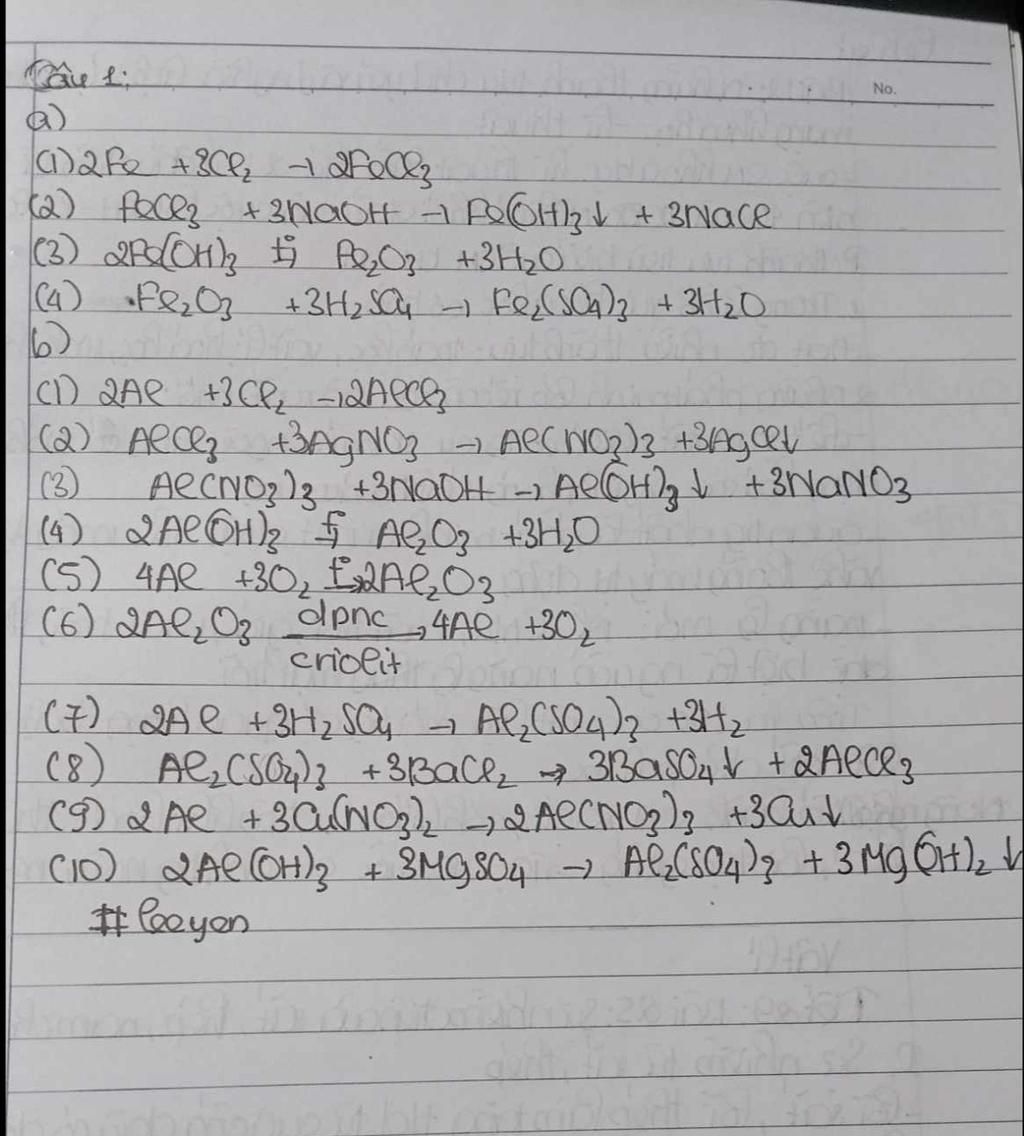 Câu 1:
No.
a)
(1) 2Fe + 3Cl₂ → 2FeCl₃
(2) FeCl₃ + 3NaOH → Fe(OH)₃↓ + 3NaCl
(3) 2Fe(OH)₃ t°→ Fe₂O₃ + 3H₂O
(4) Fe₂O₃ + 3H₂SO₄ → Fe₂(SO₄)₃ + 3H₂O
b)
(1) 2Al + 3Cl₂ → 2AlCl₃
(2) AlCl₃ + 3AgNO₃ → Al(NO₃)₃ + 3AgCl↓
(3) Al(NO₃)₃ + 3NaOH → Al(OH)₃↓ + 3NaNO₃
(4) 2Al(OH)₃ t°→ Al₂O₃ + 3H₂O
(5) 4Al + 3O₂ t°→ 2Al₂O₃
(6) 2Al₂O₃ dpnc→ 4Al + 3O₂
criolit
(7) 2Al + 3H₂SO₄ → Al₂(SO₄)₃ + 3H₂
(8) Al₂(SO₄)₃ + 3BaCl₂ → 3BaSO₄↓ + 2AlCl₃
(9) 2Al + 3Cu(NO₃)₂ → 2Al(NO₃)₃ + 3Cu↓
(10) 2Al(OH)₃ + 3MgSO₄ → Al₂(SO₄)₃ + 3Mg(OH)₂↓
# leeyen